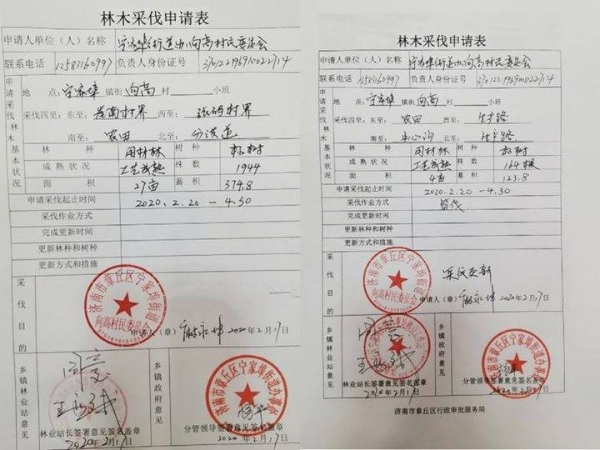 林木采伐申请表
申请人单位（人）名称 宁家埠街道向高村民委员会
联系电话 负责人身份证号
申请采伐林木基本状况
地 点： 宁家埠 镇街 向高 村 小班
采伐四至：东至： 村界 西至： 村界
南至： 农田 北至：
林 种 用材林 树 种 杨树
成熟状况 工艺成熟 株 数 1944
面 积 27亩 蓄 积 374.8
申请采伐起止时间 2020.2.20 — 4.30
采伐作业方式
完成更新时间
更新林种和树种
更新方式和措施
采伐
济南市章丘区宁家埠街道向高村民委员会
申请人（章） 2020年2月17日
乡镇林业站意见
同意
林业站长签署意见签名盖章
2020年2月17日
乡镇政府意见
济南市章丘区宁家埠街道办事处
分管领导签署意见签名盖章
2020年2月17日
林木采伐申请表
申请人单位（人）名称 宁家埠街道向高村民委员会
联系电话 负责人身份证号
申请采伐林木基本状况
地 点： 宁家埠 镇街 向高 村 小班
采伐四至：东至： 农田 西至： 生产路
南至： 北至： 生产路
林 种 用材林 树 种 杨树
成熟状况 工艺成熟 株 数 164棵
面 积 4亩 蓄 积 123.8
申请采伐起止时间 2020.2.20 — 4.30
采伐作业方式 皆伐
完成更新时间
更新林种和树种
更新方式和措施
采伐
采伐更新
申请人（章） 2020年2月17日
乡镇林业站意见
同意
林业站长签署意见签名盖章
2020年2月17日
乡镇政府意见
分管领导签署意见签名盖章
2020年2月17日
济南市章丘区行政审批服务局